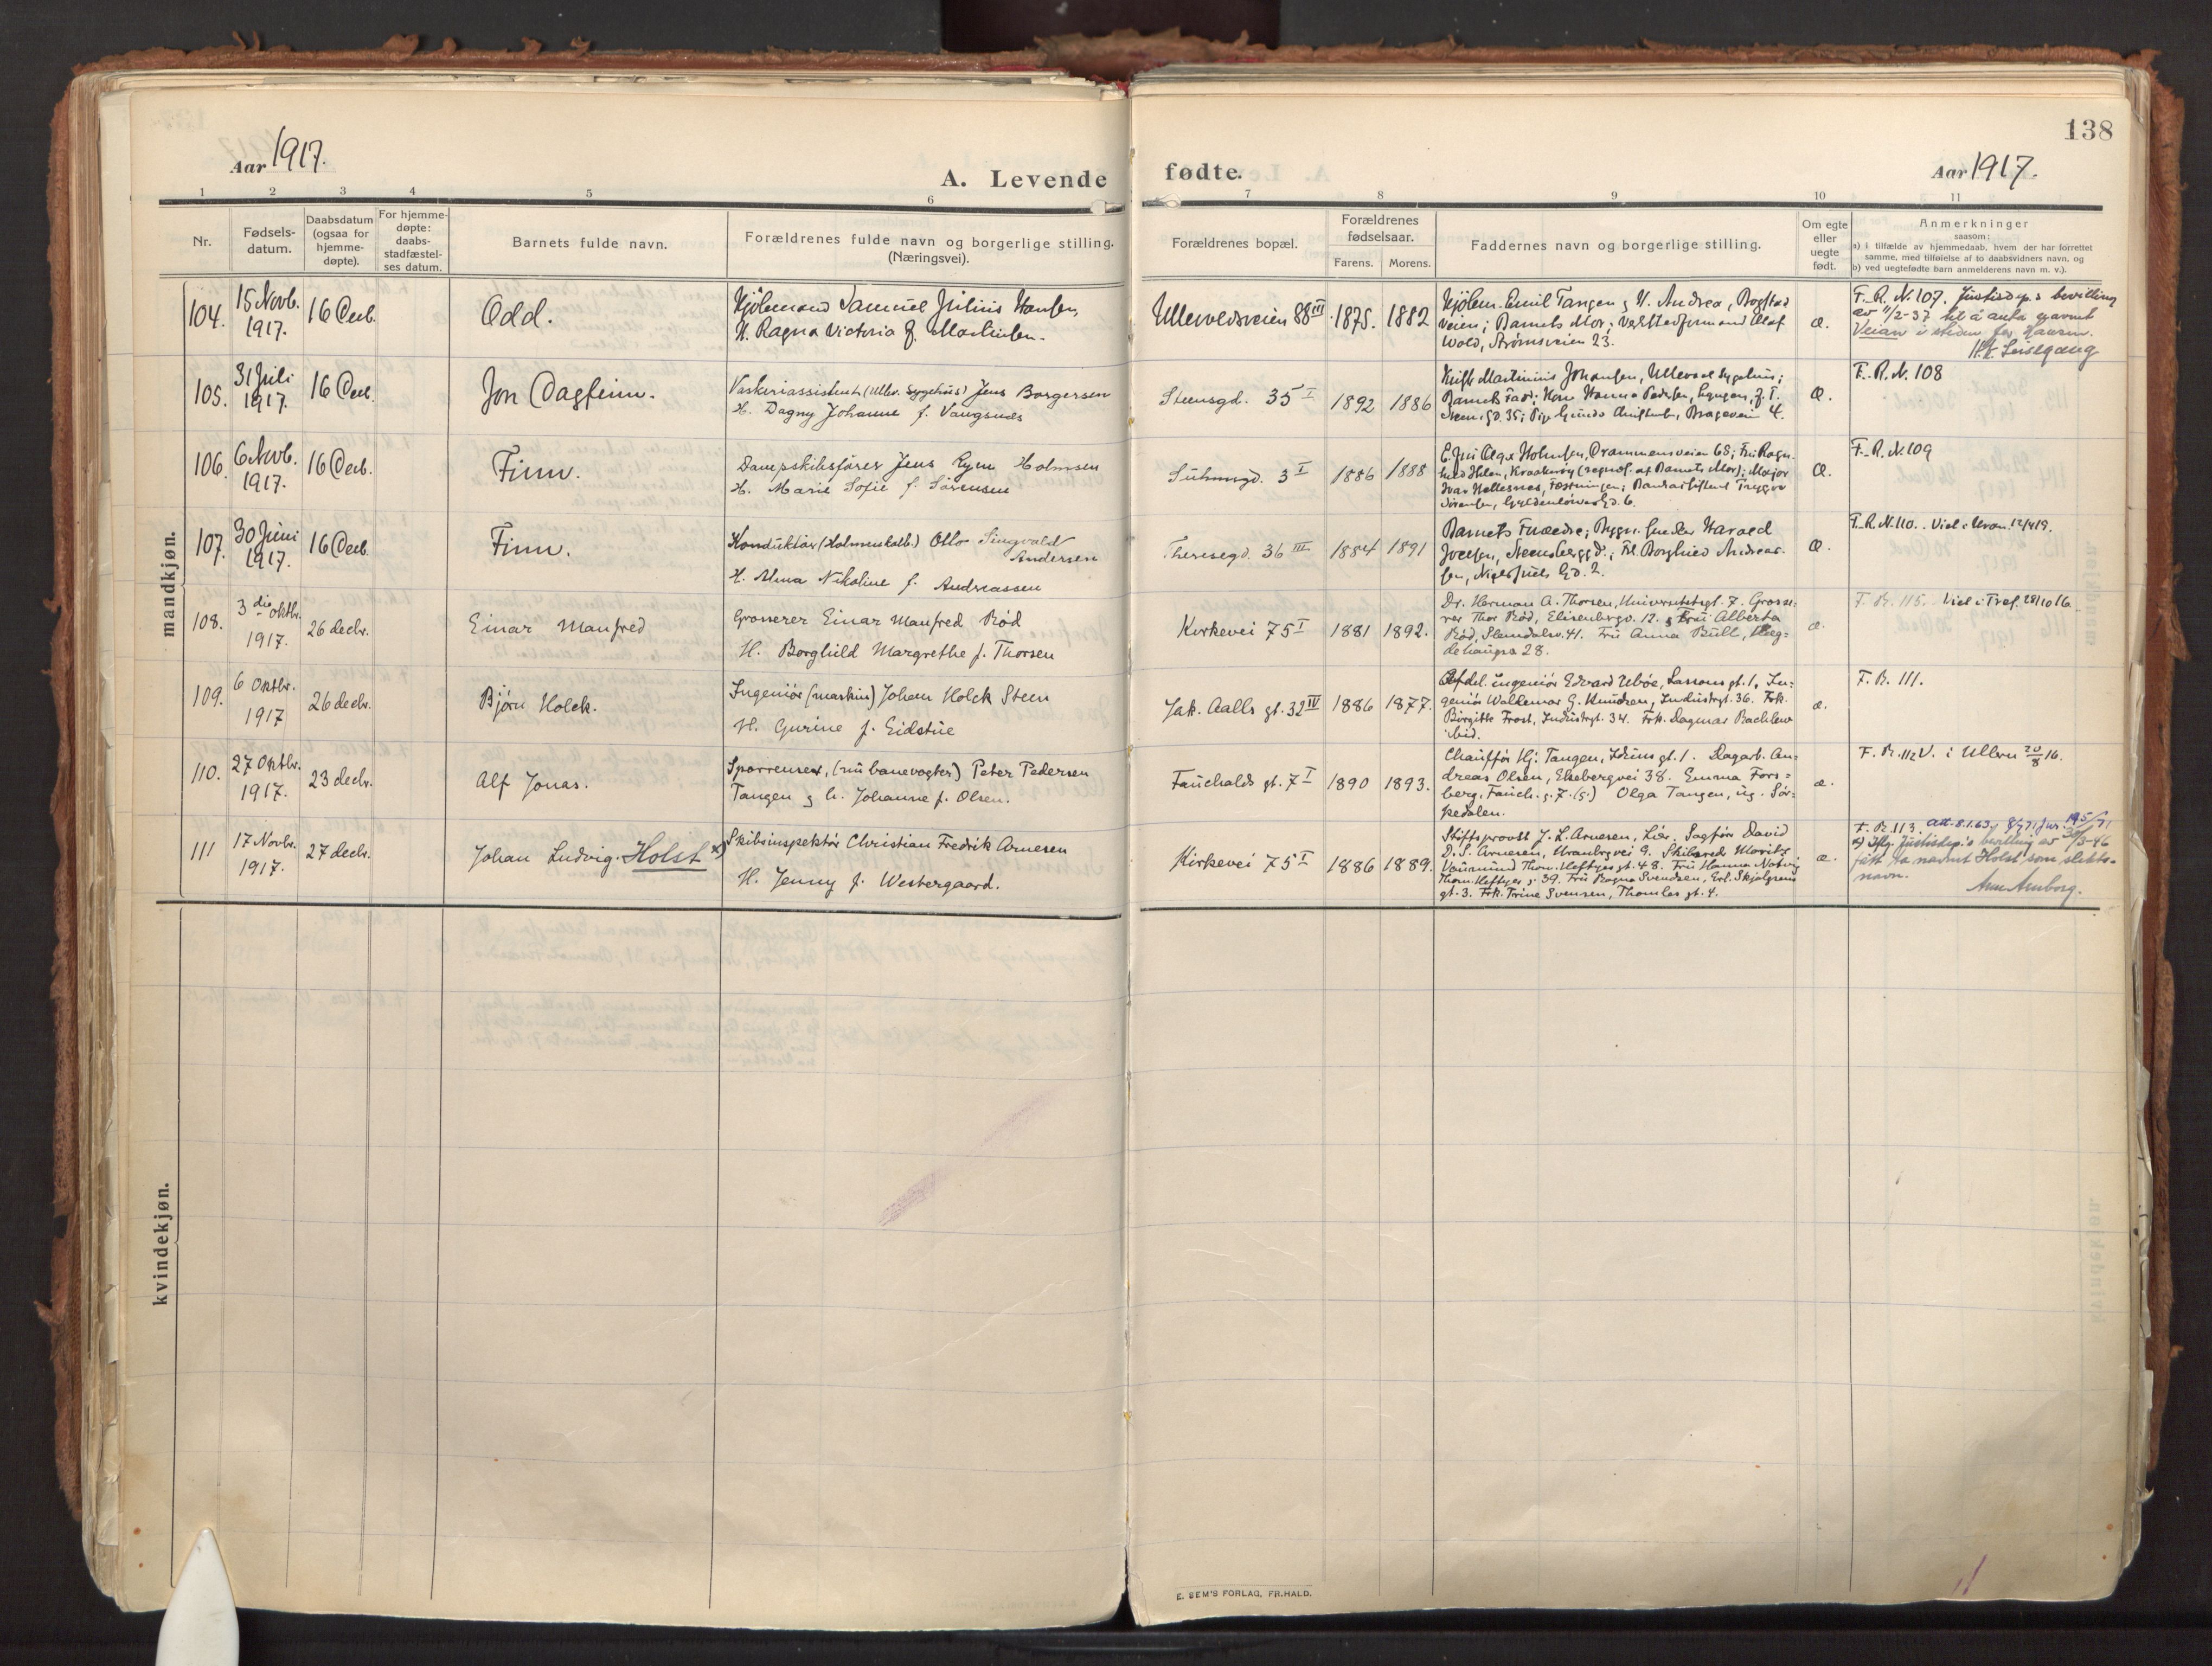 138
Aar 1917.
A. Levende fødte.
Aar 1917.
1 2 3 4 5 6 7 8 9 10 11
Nr.
Fødsels-
datum.
Daabsdatum
(ogsaa for
hjemme-
døpte).
For hjemme-
døpte:
daabs-
stadfæstel-
ses datum.
Barnets fulde navn.
Forældrenes fulde navn og borgerlige stilling.
(Næringsvei).
Forældrenes bopæl.
Forældrenes
fødselsaar.
Farens. Morens.
Faddernes navn og borgerlige stilling.
Om egte
eller
uegte
født.
Anmerkninger
saasom:
a) i tilfælde av hjemmedaab, hvem der har forrettet
samme, med tilføielse af to daabsvidners navn, og
b) ved uegtefødte barn anmelderens navn m. v.).
mandkjøn.
104.
15 Novb.
1917.
16 Decb.
Odd.
Kjölemand Samuel Julius Hansen,
H. Ragna Victoria f. Martinsen.
Ullevoldsveien 88 III
1875. 1882
Kjölem. Emil Tangen g H. Andrea, Bogstad
veien; Barnets Mor; Verkstedformand Olaf
Wold, Strömsveien 23.
Æ.
F. R. N. 107. Justisdep.s bevilling
av 11/2-37 til å anta navnet
Veian i steden for Hansen.
105.
31 Juli
1917.
16 Decb.
Jon Dagfinn.
Vaskeriassistent (Ullev. Sygehus) Jens Borgersen
H. Dagny Johanne f. Vangsnes
Steensgd. 35 I
1892 1886
Martinius Johansen, Ullevaal Sygehus;
Æ.
F. R. N. 108
106.
6 Novb.
1917.
16 Decb.
Finn.
Dampskibsförer Jens Ryen Holmsen
H. Marie Sofie f. Sörensen
Suhmsgd. 3 I
1886 1888
Holmsen, Drammensveien 68; Fru Ragn-
Kraakeröy (repræs. af Barnets Mor); Major
Ivar Hellesnes, Fæstningen; Bankassistent Trygve
Sörensen, Gyldenlöves Gd. 6.
Æ.
F. R. N. 109
107.
30 Juni
1917.
16 Decb.
Finn.
Konduktör (Holmenkolb.) Otto Singvald
Andersen
H. Alma Nikoline f. Andreassen
Theresegd. 36 III
1884 1891
Barnets Forældre; Harald
Fr. Borghild Andreas-
sen, Gd. 2.
Æ.
F. R. N. 110. Viel i Uran. 12/4 19.
108.
3 die Oktbr.
1917.
26 decbr.
Einar Manfred
Grosserer Einar Manfred Röd
H. Borghild Margrethe f. Thorsen
Kirkevei 75 I
1881 1892.
Dr. Herman A. Thorsen, Universitetsgt. 7. Grosse-
rer Thor Röd, Elisenbergv. 12. g Fru Alberta
Röd, Slemdalsv. 41. Fru Anna Bull, Heg-
dehaugsv 28.
æ.
F. R. 115. Viel i Tref. 28/10 16.
109.
6 Oktbr.
1917
26 decbr.
Bjørn Holck.
Ingeniör (maskin) Johan Holck Steen
H. Gurine f. Eidstüe
Jak. Aalls gt. 32 IV
1886 1877.
Afdel. ingeniör Edvard Uböe, Lassons gt. 1, In-
geniör Waldemar G. Knudsen, Industrigt. 36. Frk.
Birgitte Frost, Industrigt. 34. Frk. Dagmar Bachlew
ibid.
æ.
F. R. 111.
110.
27 Oktbr.
1917.
23 decbr.
Alf Jonas.
Sporrenser, (nu banevogter) Peter Pedersen
Tangen g h. Johanne f. Olsen.
Fauchalds gt. 7 I
1890 1893.
Chaufför Hj. Tangen, gt. 1. Dagarb. An-
dreas Olsen, Ekebergvei 38. Emma Fors-
berg, Fauch. g. 7. (s.) Olga Tangen, ug. Sör-
kedalen.
æ.
F. R. 112 V. i Ullern 20/8 16.
111
17 Novbr.
1917.
27 decbr.
Johan Ludvig. Holst x)
Skibsinspektör Christian Fredrik Arnesen
H. Jenny f. Westergaard.
Kirkevei 75 I
1886 1889.
Stiftsprovst J. L. Arnesen, Lier. Sagförer David
D. S. Arnesen, Uranbrgvei 9. Skibsred. Moritz
Thom. Heftyes gt. 48. Fru Hanna Natvig
Thom. Heftyes g. 39. Fru Ragna Svendsen, Erl. Skjalgsens
gt. 3. Frk. Trine Svensen, Thomles gt. 4.
æ.
F. R. 113. Att. 8.1.63.
x) Iflg. Justisdep.'s bevilling av 30/3-46
fått ta navnet Holst som slekts-
navn.
kvindekjøn.
E. SEM'S FORLAG, FR.HALD.